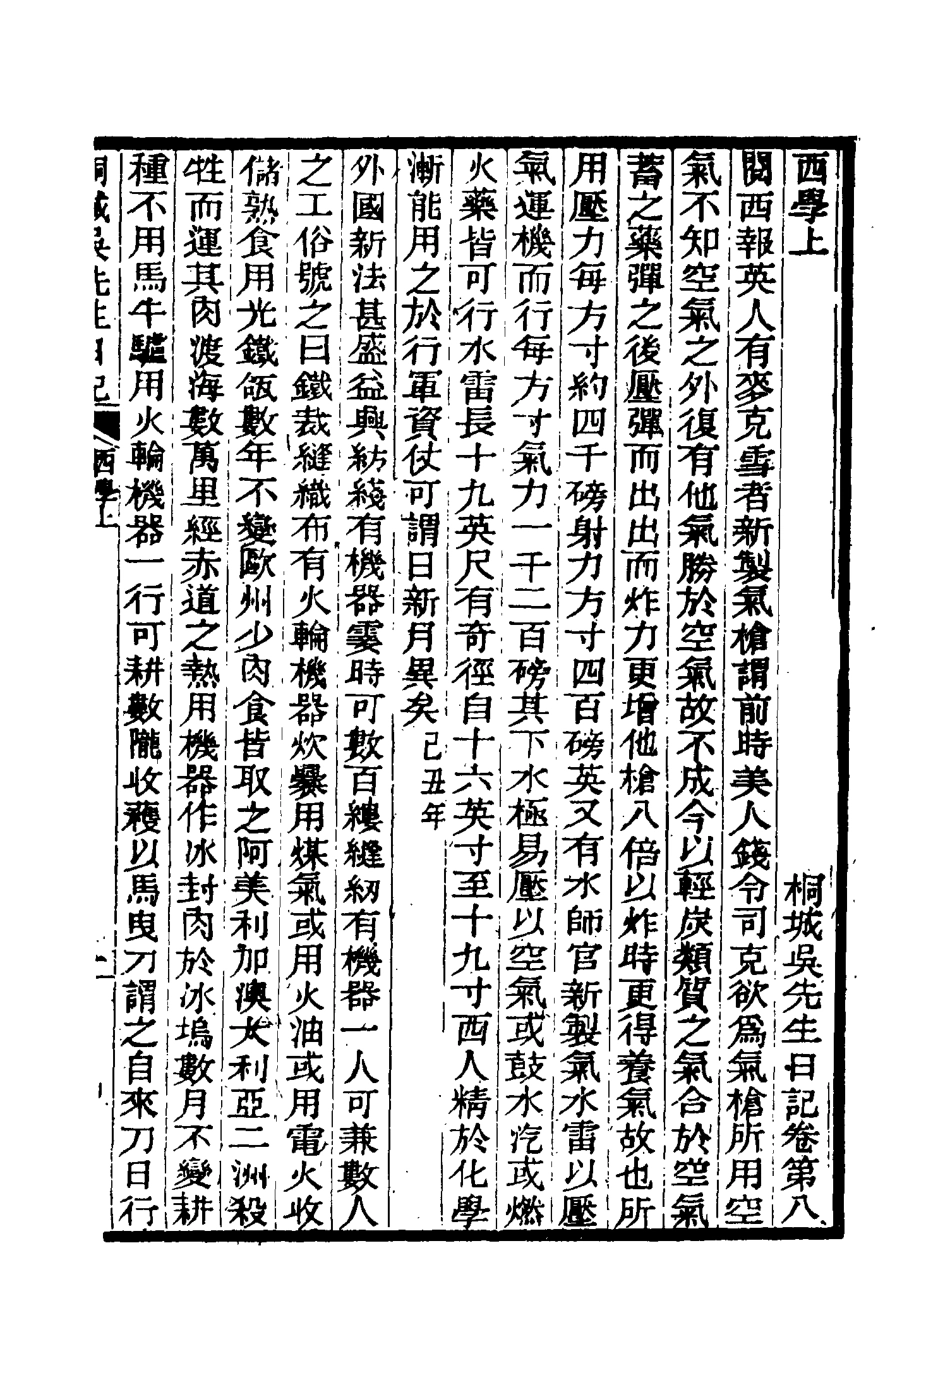 西學上
桐城吳先生日記卷第八
閱西報英人有麥克雪者新製氣槍謂前時美人錢令司克欲爲氣槍所用空
氣不知空氣之外復有他氣勝於空氣故不成今以輕炭類質之氣合於空氣
蓄之藥彈之後壓彈而出出而炸力更增他槍八倍以炸時更得養氣故也所
用壓力每方寸約四千磅射力方寸四百磅英又有水師官新製氣水雷以壓
氣運機而行每方寸氣力一千二百磅其下水極易壓以空氣或鼓水汽或燃
火藥皆可行水雷長十九英尺有奇徑自十六英寸至十九寸西人精於化學
漸能用之於行軍資仗可謂日新月異矣己丑年
外國新法甚盛益興紡綫有機器霎時可數百縷縫紉有機器一人可兼數人
之工俗號之曰鐵裁縫織布有火輪機器炊爨用煤氣或用火油或用電火收
儲熟食用光鐵瓴數年不變歐州少肉食皆取之阿美利加澳大利亞二洲殺
牲而運其肉渡海數萬里經赤道之熱用機器作冰封肉於冰塢數月不變耕
種不用馬牛驢用火輪機器一行可耕數隴收穫以馬曳刀謂之自來刀日行
桐城吳先生日記 西學上 一